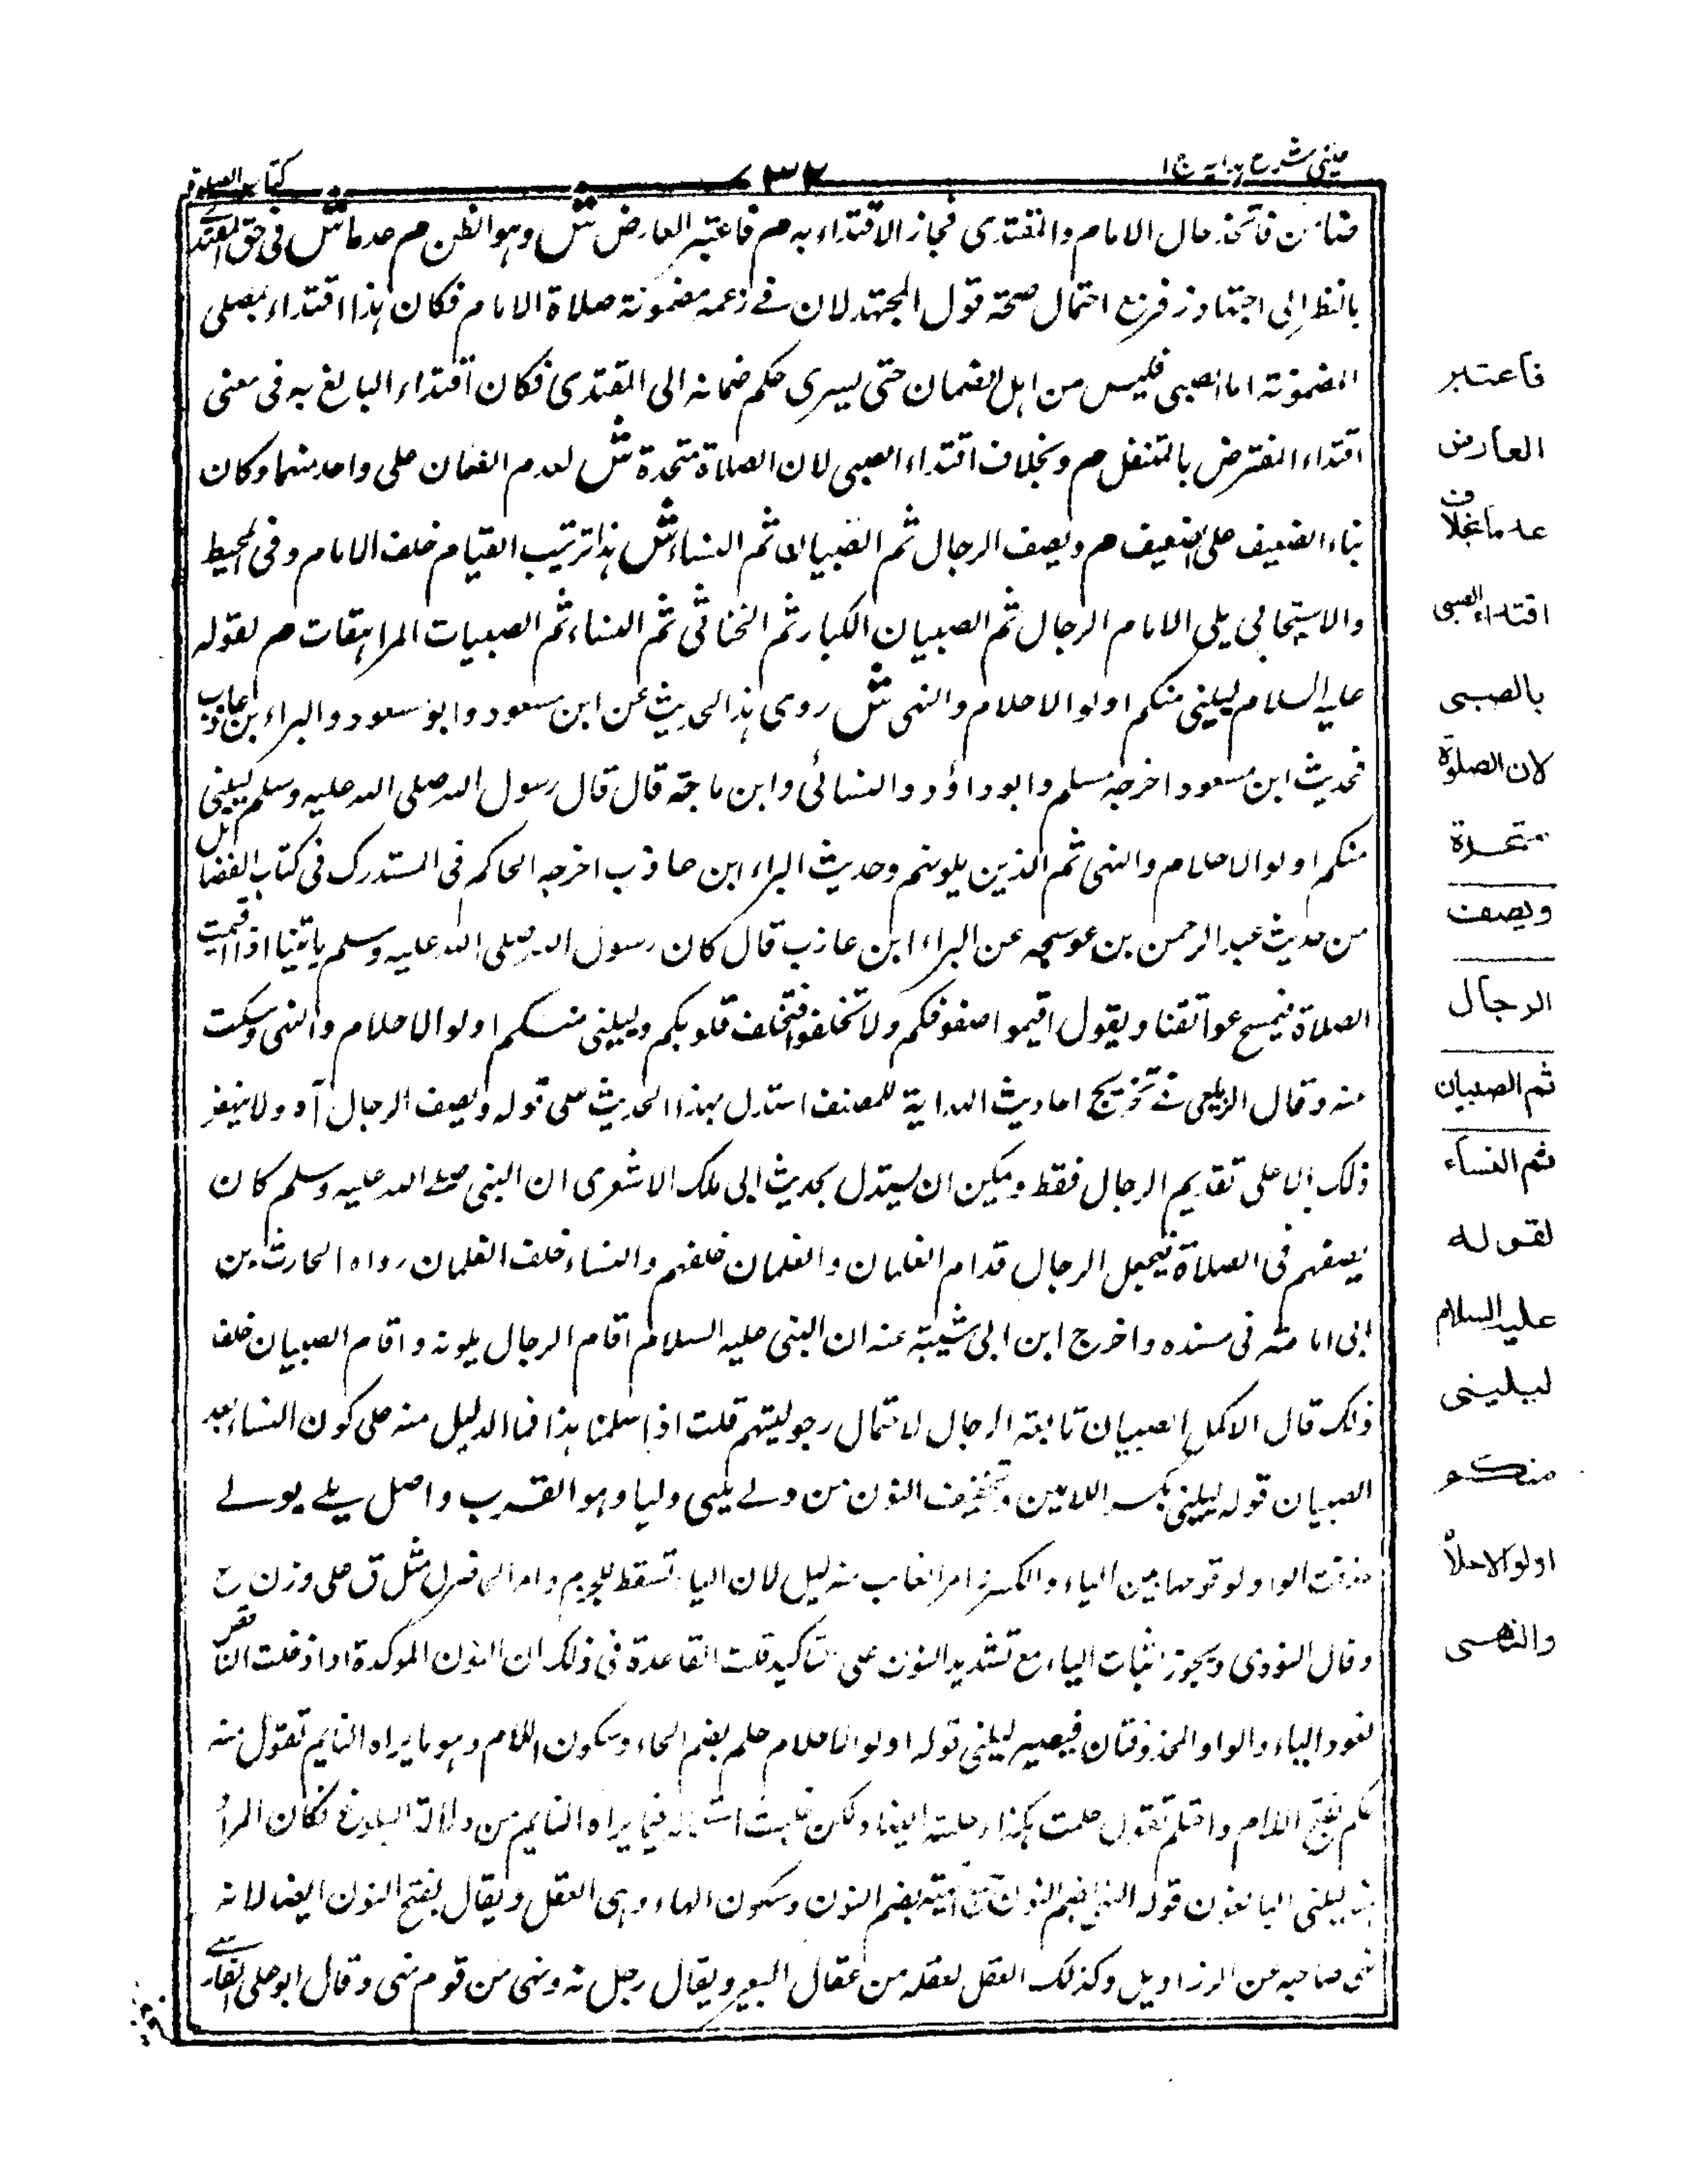 عینی شرح ہدایہ ج ۱
کتاب الصلوة
ضامن فاتخذ حال الامام والمقتدى فجاز الاقتداء به م فاعتبر العارض ش وهو الظن م عدما ش فى حق المقتدى
بالنظر الى اجتهاد زفر مع احتمال صحة قول المجتهد لان فى زعمه مضمونة صلاة الامام فكان هذا اقتداء بمصلى
المضمونة اما الصبى فليس من اهل الضمان حتى يسرى حكم ضمانه الى المقتدى فكان اقتداء البالغ به فى معنى
اقتداء المفترض بالمتنفل م وبخلاف اقتداء الصبى لان الصلاة متحدة ش لعدم الضمان على واحد منهما وكان
بناء الضعيف على الضعيف م ويصف الرجال ثم الصبيان ثم النساء ش هذا ترتيب القيام خلف الامام وفى المحيط
والاسبيجابى يلى الامام الرجال ثم الصبيان الكبار ثم الخناثى ثم النساء ثم الصبيات المراهقات م لقوله
عليه السلام ليلينى منكم اولو الاحلام والنهى ش روى هذا الحديث عن ابن مسعود وابو مسعود والبراء بن عازب
فحديث ابن مسعود اخرجه مسلم وابو داؤد والنسائى وابن ماجة قال قال رسول الله صلى الله عليه وسلم ليلينى
منكم اولو الاحلام والنهى ثم الذين يلونهم وحديث البراء ابن عازب اخرجه الحاكم فى المستدرك فى كتاب الفضائل
من حديث عبد الرحمن بن عوسجه عن البراء ابن عازب قال كان رسول الله صلى الله عليه وسلم ياتينا اذا اقيمت
الصلاة فيمسح عواتقنا ويقول اقيموا صفوفكم ولا تختلفوا فتختلف قلوبكم وليلينى منكم اولو الاحلام والنهى وسكت
عنه وقال الزيلعى فى تخريج احاديث الهداية للمصنف استدل بهذا الحديث على قوله ويصف الرجال آه ولا ينهض
ذلك الا على تقديم الرجال فقط ويمكن ان يستدل بحديث ابى ملك الاشعرى ان النبى صلى الله عليه وسلم كان
يصفهم فى الصلاة فيجعل الرجال قدام الغلمان والغلمان خلفهم والنساء خلف الغلمان رواه الحارث بن
ابى امامة فى مسنده واخرج ابن ابى شيبة عنه ان النبى عليه السلام اقام الرجال يلونه واقام الصبيان خلف
ذلك قال الاكمل الصبيان تابعة الرجال لاحتمال رجوليتهم قلت اذا سلمنا هذا فما الدليل منه على كون النساء بعد
الصبيان قوله ليلينى بكسر اللامين وتخفيف النون من ولى يلى وليا وهو القرب واصل يلى يولى
حذفت الواو لوقوعها بين الياء والكسرة امر الغائب منه ليل لان الياء تسقط للجزم وامر الحاضر ل مثل ق على وزن ع
وقال النووى ويجوز اثبات الياء مع تشديد النون على التاكيد قلت القاعدة فى ذلك ان النون الموكدة اذا دخلت الناقص
تعود الياء والواو المحذوفتان فيصير ليلينى قوله اولو الاحلام حلم بضم الحاء وسكون اللام وهو ما يراه النايم تقول منه
حلم بفتح اللام واحتلم تقول حلمت بكذا وحلمته ايضا ولكن غلبت استعماله فيما يراه النايم من دلالة البلوغ فكان المراد
منه ليلينى البالغون قوله النهى بضم النون جمع نهية بضم النون وسكون الهاء وهى العقل ويقال بفتح النون ايضا لانه
نهى صاحبه عن الرذاويل وكذلك العقل لعقله من عقال البعير ويقال رجل نه ونهى من قوم نهى وقال ابو على الفارسى
فاعتبر
العارض
عدما بخلاف
اقتداء الصبى
بالصبى
لان الصلوة
متحدة
ويصف
الرجال
ثم الصبيان
ثم النساء
لقوله
عليه السلام
ليلينى
منكم
اولو الاحلام
والنهى